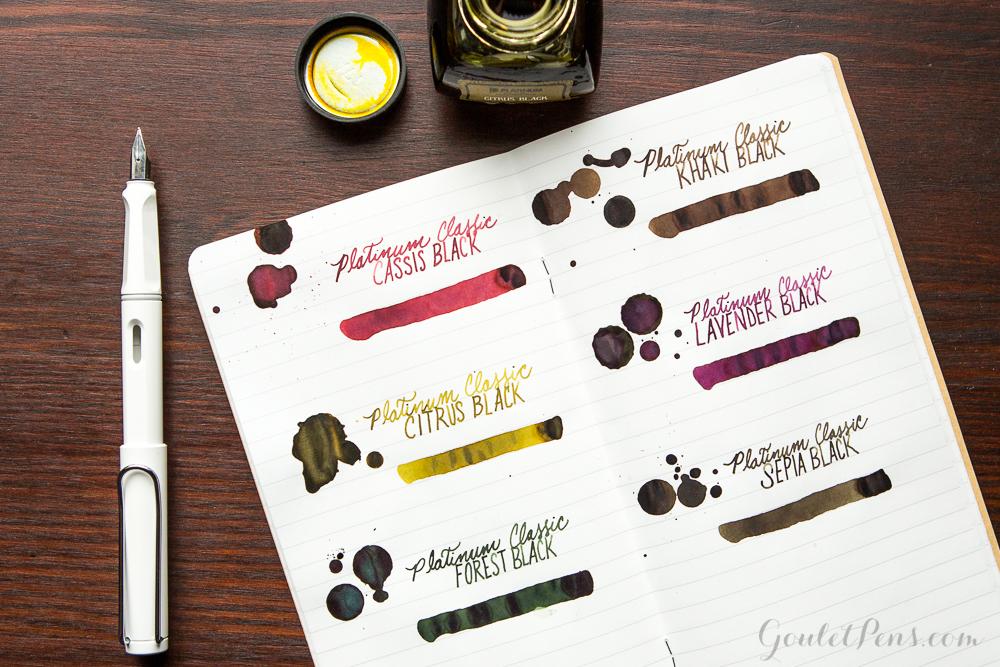 PLATINUM
CITRUS BLACK
Platinum Classic
CASSIS BLACK
Platinum Classic
CITRUS BLACK
Platinum Classic
FOREST BLACK
Platinum Classic
KHAKI BLACK
Platinum Classic
LAVENDER BLACK
Platinum Classic
SEPIA BLACK
GouletPens.com